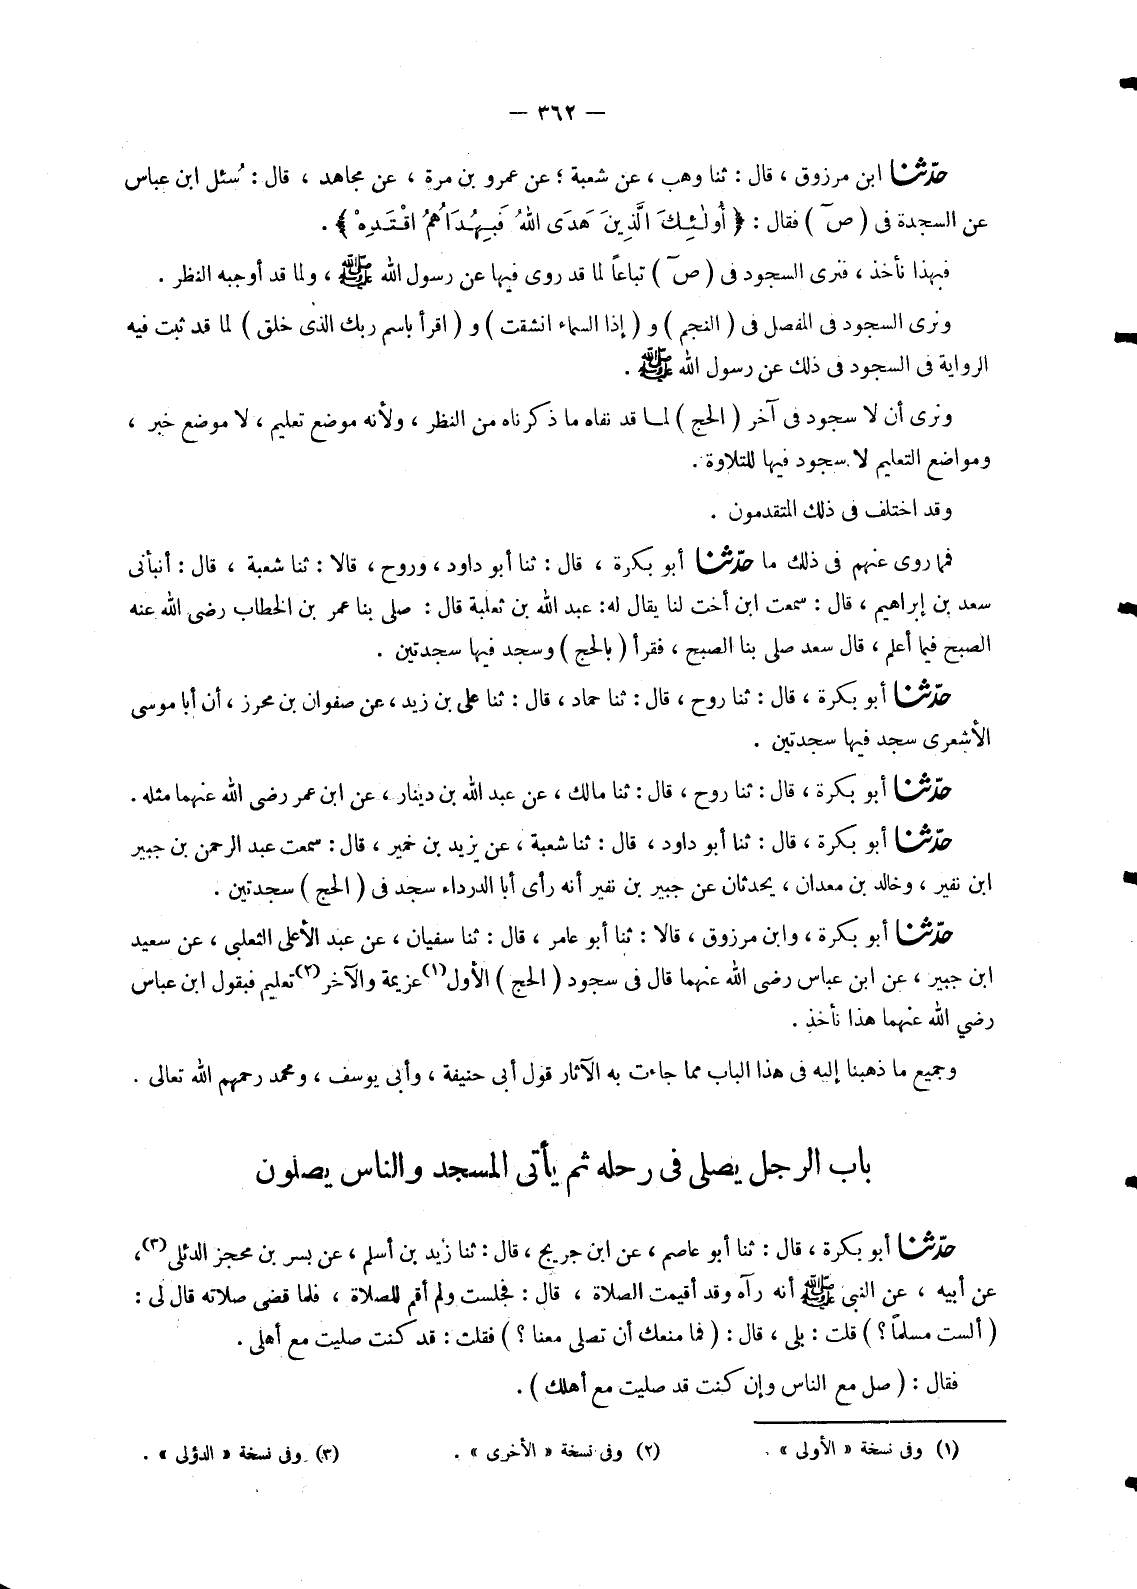 — ٣٦٢ —
حدّثنا ابن مرزوق ، قال : ثنا وهب ، عن شعبة ؛ عن عمرو بن مرة ، عن مجاهد ، قال : سُئل ابن عباس
عن السجدة فى ( صٓ ) فقال : ﴿ أُولَٰئِكَ الَّذِينَ هَدَى اللهُ فَبِهُدَاهُمُ اقْتَدِهْ ﴾ .
فبهذا نأخذ ، فنرى السجود فى ( صٓ ) تباعاً لما قد روى فيها عن رسول الله ﷺ ، ولما قد أوجبه النظر .
ونرى السجود فى المفصل فى ( النجم ) و ( إذا السماء انشقت ) و ( اقرأ باسم ربك الذى خلق ) لما قد ثبت فيه
الرواية فى السجود فى ذلك عن رسول الله ﷺ .
ونرى أن لا سجود فى آخر ( الحج ) لما قد نفاه ما ذكرناه من النظر ، ولأنه موضع تعليم ، لا موضع خبر ،
ومواضع التعليم لا سجود فيها للتلاوة .
وقد اختلف فى ذلك المتقدمون .
فما روى عنهم فى ذلك ما حدّثنا أبو بكرة ، قال : ثنا أبو داود ، وروح ، قالا : ثنا شعبة ، قال : أنبأنى
سعد بن إبراهيم ، قال : سمعت ابن أخت لنا يقال له : عبد الله بن ثعلبة قال : صلى بنا عمر بن الخطاب رضى الله عنه
الصبح فيما أعلم ، قال سعد صلى بنا الصبح ، فقرأ ( بالحج ) وسجد فيها سجدتين .
حدّثنا أبو بكرة ، قال : ثنا روح ، قال : ثنا حماد ، قال : ثنا على بن زيد ، عن صفوان بن محرز ، أن أبا موسى
الأشعرى سجد فيها سجدتين .
حدّثنا أبو بكرة ، قال : ثنا روح ، قال : ثنا مالك ، عن عبد الله بن دينار ، عن ابن عمر رضى الله عنهما مثله .
حدّثنا أبو بكرة ، قال : ثنا أبو داود ، قال : ثنا شعبة ، عن يزيد بن خمير ، قال : سمعت عبد الرحمن بن جبير
ابن نفير ، وخالد بن معدان ، يحدثان عن جبير بن نفير أنه رأى أبا الدرداء سجد فى ( الحج ) سجدتين .
حدّثنا أبو بكرة ، وابن مرزوق ، قالا : ثنا أبو عامر ، قال : ثنا سفيان ، عن عبد الأعلى الثعلبى ، عن سعيد
ابن جبير ، عن ابن عباس رضى الله عنهما قال فى سجود ( الحج ) الأول(١) عزيمة والآخر(٢) تعليم فبقول ابن عباس
رضي الله عنهما هذا نأخذ .
وجميع ما ذهبنا إليه فى هذا الباب مما جاءت به الآثار قول أبى حنيفة ، وأبى يوسف ، ومحمد رحمهم الله تعالى .
باب الرجل يصلى فى رحله ثم يأتى المسجد والناس يصلون
حدّثنا أبو بكرة ، قال : ثنا أبو عاصم ، عن ابن جريج ، قال : ثنا زيد بن أسلم ، عن بسر بن محجز الدئلى(٣) ،
عن أبيه ، عن النبى ﷺ أنه رآه وقد أقيمت الصلاة ، قال : فجلست ولم أقم للصلاة ، فلما قضى صلاته قال لى :
( ألست مسلماً ؟ ) قلت : بلى ، قال : ( فما منعك أن تصلى معنا ؟ ) فقلت : قد كنت صليت مع أهلى .
فقال : ( صل مع الناس وإن كنت قد صليت مع أهلك ) .
(١) وفى نسخة « الأولى » . (٢) وفى نسخة « الأخرى » . (٣) وفى نسخة « الدؤلى » .